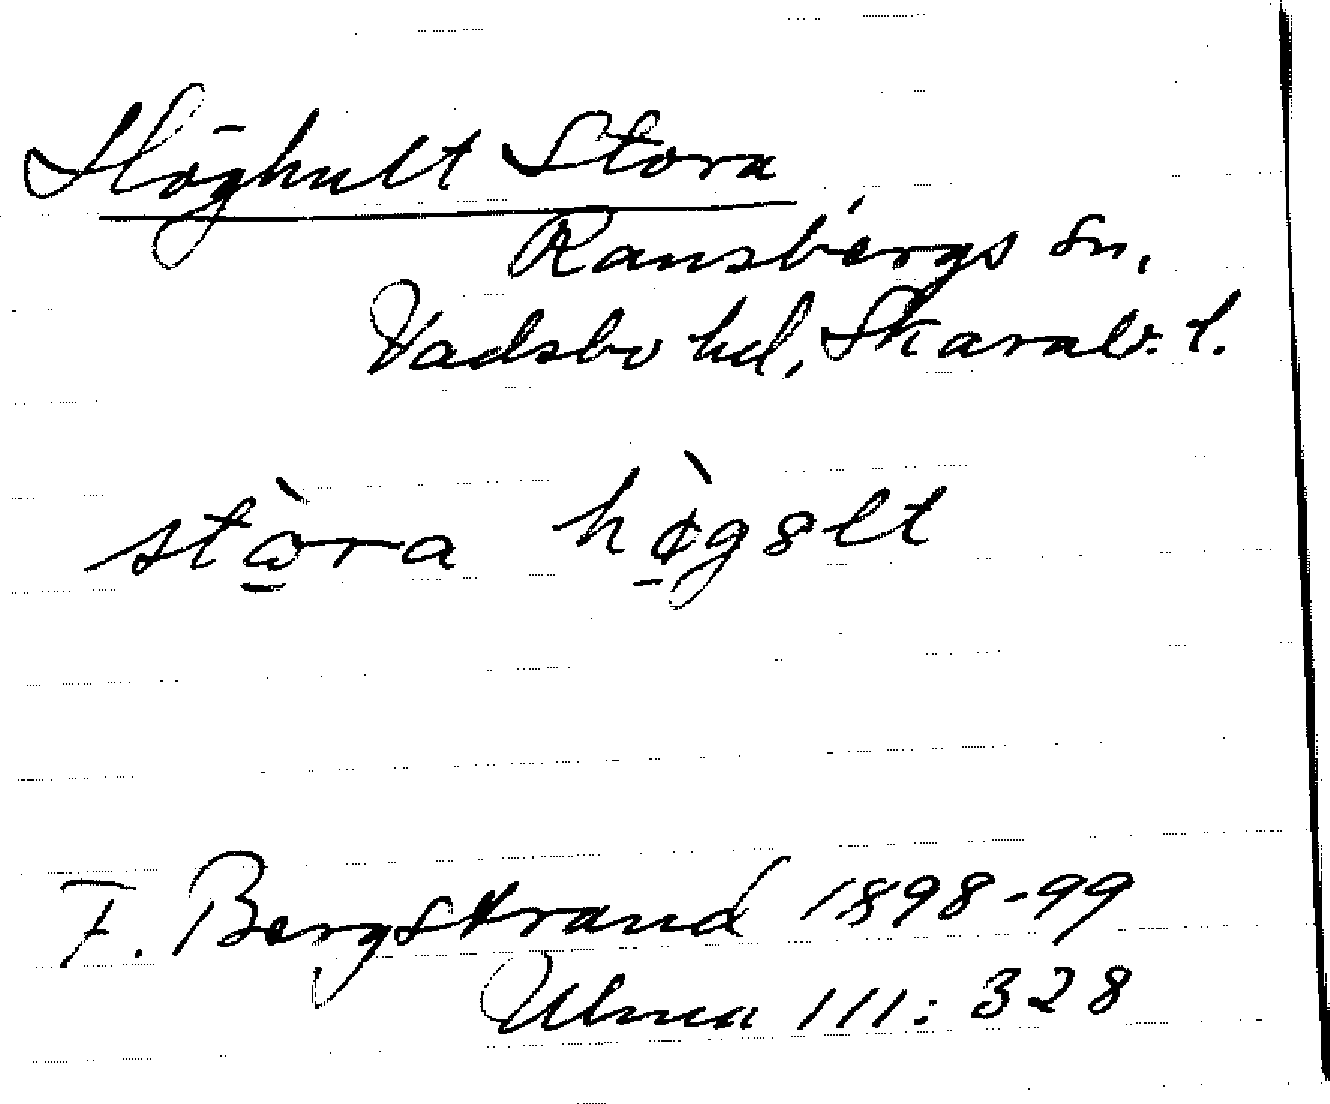 Höghult Stora
Ransbergs sn,
Vadsbo hd, Skarab. l.
stòra hø̀gslt
F. Bergstrand 1898-99
Ulma 111: 328